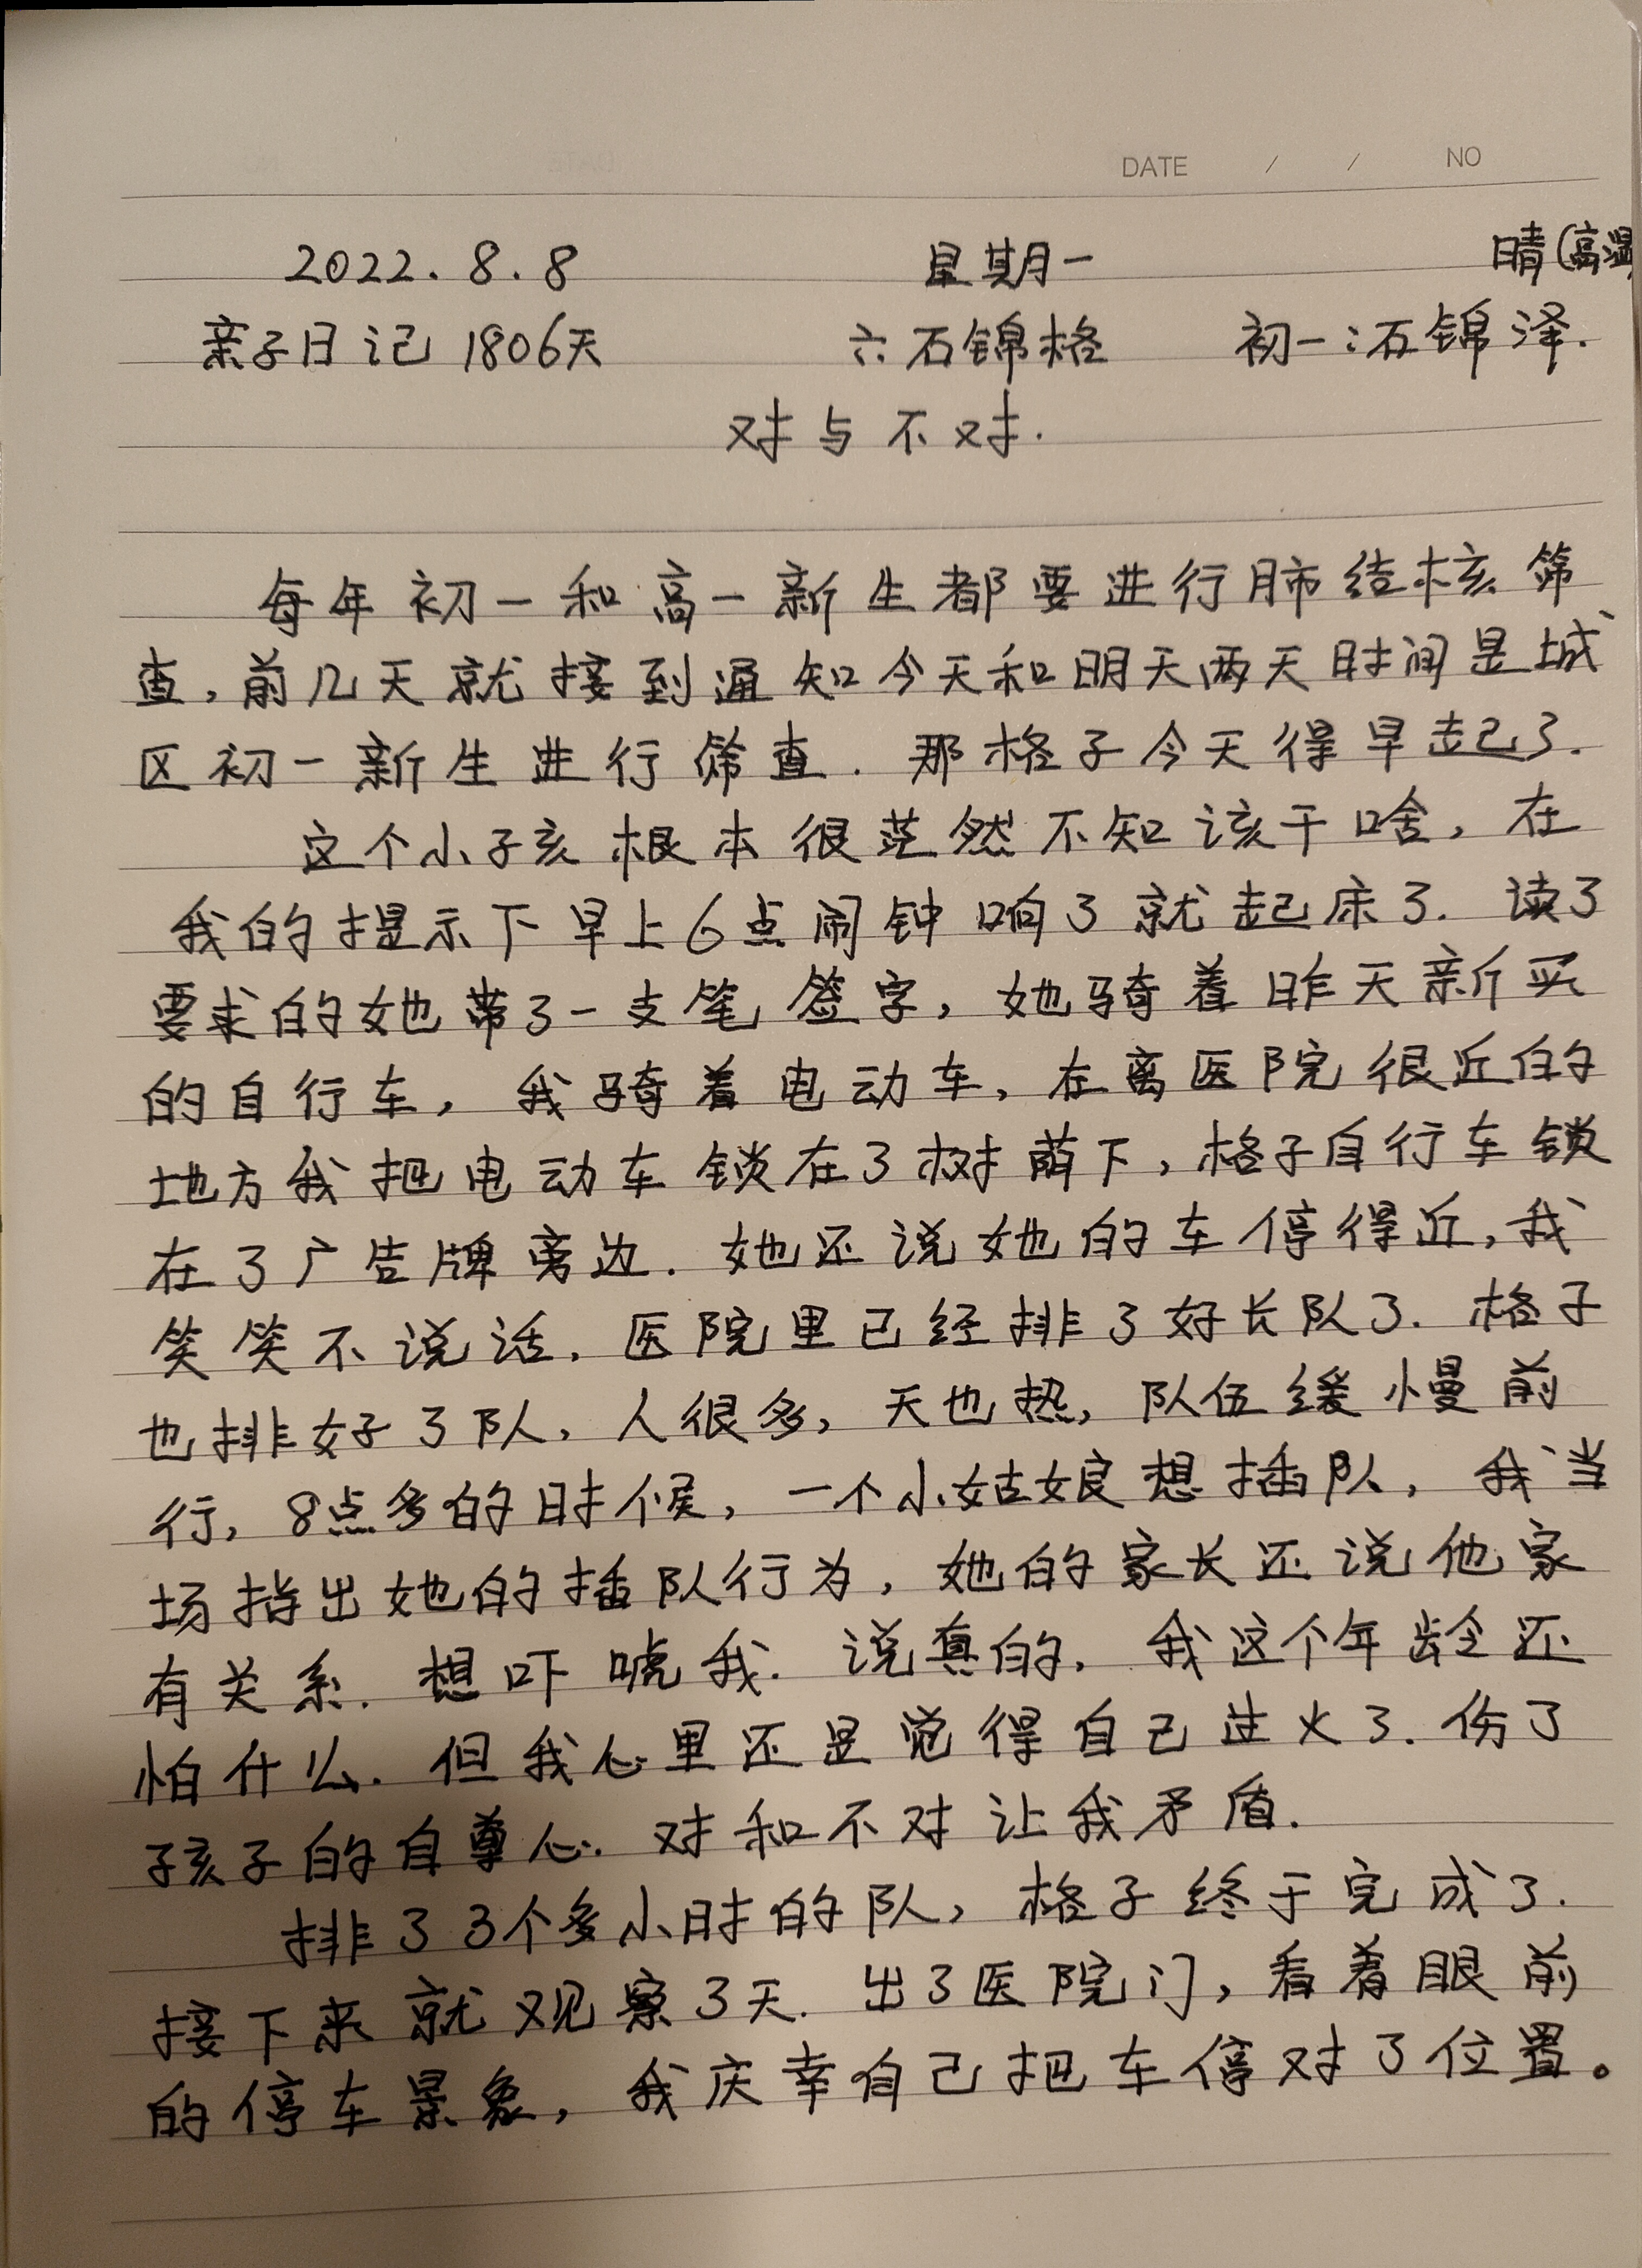 DATE / / NO
2022.8.8 星期一 晴(高温
亲子日记 1806天 六石锦格 初一:石锦泽.
对与不对.
每年初一和高一新生都要进行肺结核筛
查,前几天就接到通知今天和明天两天时间是城
区初一新生进行筛查.那格子今天得早起了.
这个小孩根本很茫然不知该干啥,在
我的提示下早上6点闹钟响了就起床了.读了
要求的她带了一支笔签字,她骑着昨天新买
的自行车,我骑着电动车,在离医院很近的
地方我把电动车锁在了树荫下,格子自行车锁
在了广告牌旁边.她还说她的车停得近,我
笑笑不说话.医院里已经排了好长队了.格子
也排好了队,人很多,天也热,队伍缓慢前
行,8点多的时候,一个小姑娘想插队,我当
场指出她的插队行为,她的家长还说他家
有关系.想吓唬我.说真的,我这个年龄还
怕什么.但我心里还是觉得自己过火了.伤了
孩子的自尊心.对和不对让我矛盾.
排了3个多小时的队,格子终于完成了.
接下来就观察3天.出了医院门,看着眼前
的停车景象,我庆幸自己把车停对了位置。